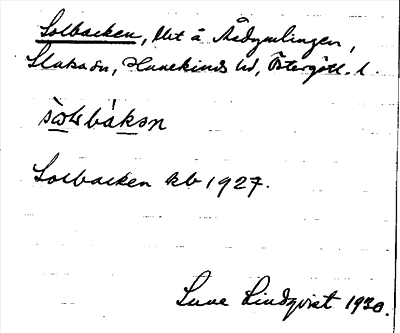 Solbacken, lht å Rådymlingen,
Slaka sn, Hanekinds hd, Östergötl. l.
sòlbákən
Solbacken kb 1927.
Sune Lindqvist 1930.